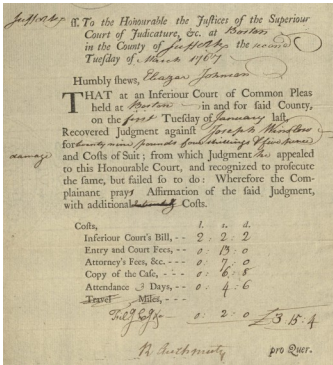 Suffolk ss. To the Honourable the Justices of the Superiour
Court of Judicature, &c. at Boston
in the County of Suffolk the second
Tuesday of March 1767
Humbly shews, Eleazar Johnson
THAT at an Inferiour Court of Common Pleas
held at Boston in and for said County,
on the first Tuesday of January last,
Recovered Judgment against Joseph Winslow
for twenty nine pounds four shillings & five pence
damage and Costs of Suit; from which Judgment he appealed
to this Honourable Court, and recognized to prosecute
the same, but failed so to do: Wherefore the Com-
plainant prays Affirmation of the said Judgment,
with additional Costs.
Costs, l. s. d.
Inferiour Court's Bill, - - 2 : 2 : 2
Entry and Court Fees, - - 0 : 13 : 0
Attorney's Fees, &c. - - - 0 : 7 : 0
Copy of the Case, - - - 0 : 6 : 8
Attendance 3 Days, - - 0 : 4 : 6
Travel Miles, - - -
0 : 2 : 0 £3 : 15 : 4
R Auchmuty pro Quer.